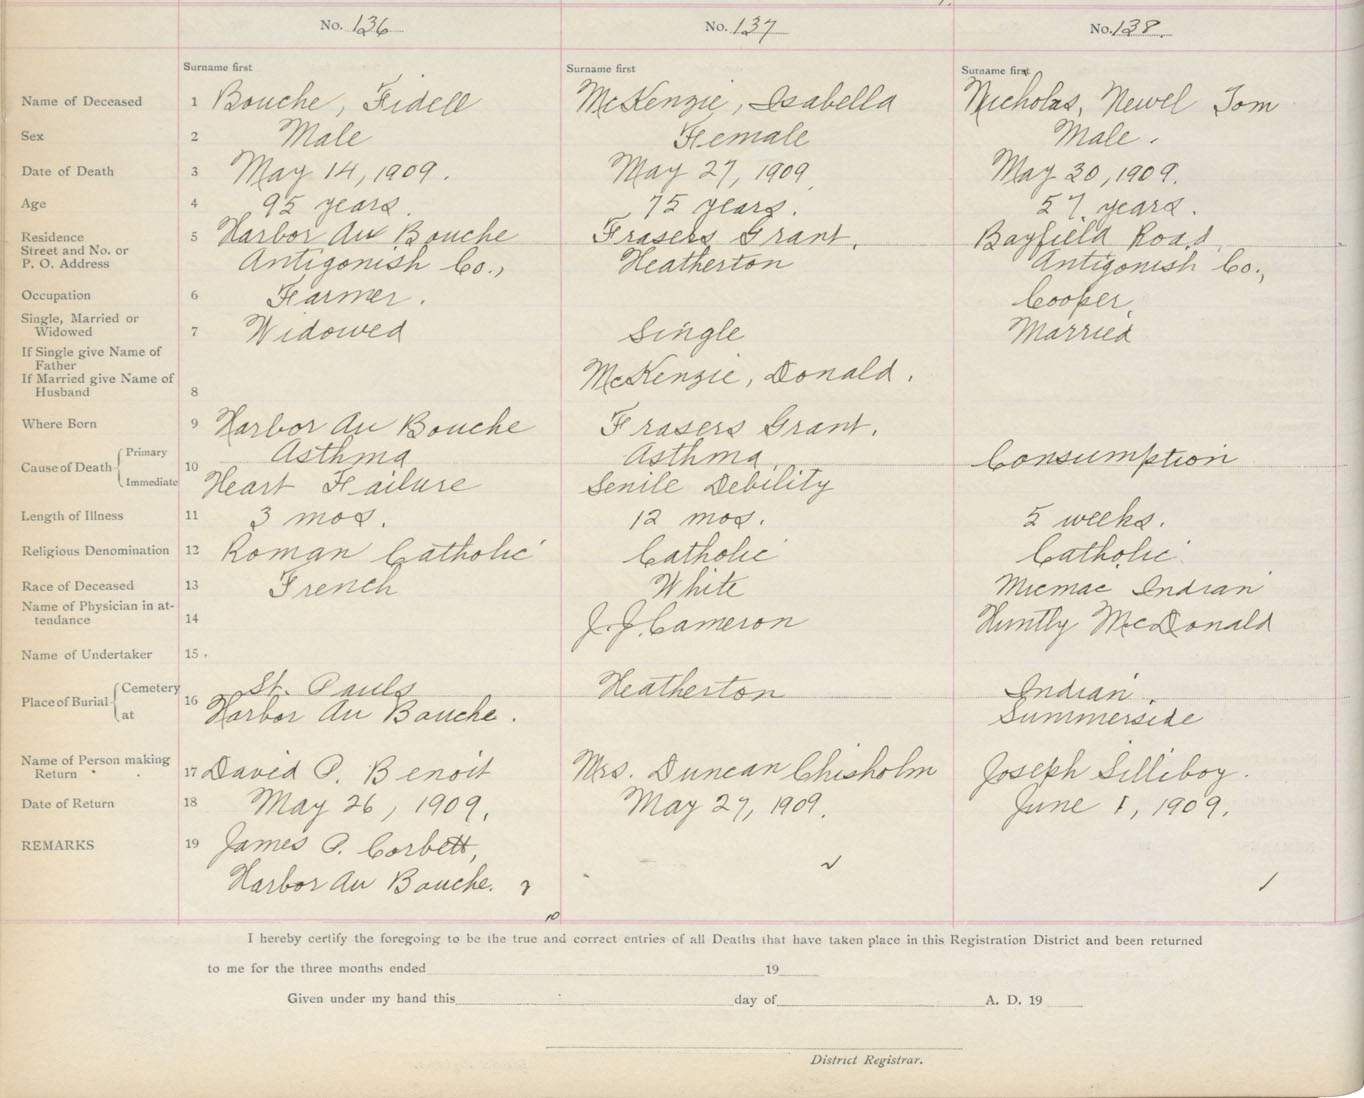 No. 136 No. 137 No. 138.
Surname first Surname first Surname first
Name of Deceased 1 Bouche, Fidell McKenzie, Isabella Nicholas, Newel Tom
Sex 2 Male Female Male.
Date of Death 3 May 14, 1909. May 27, 1909 May 30, 1909.
Age 4 95 years. 75 years. 57 years.
Residence 5 Harbor Au Bouche Frasers Grant, Bayfield Road,
Street and No. or
P. O. Address Antigonish Co., Heatherton Antigonish Co.,
Occupation 6 Farmer. Cooper
Single, Married or
Widowed 7 Widowed Single Married
If Single give Name of
Father
If Married give Name of McKenzie, Donald.
Husband 8
Where Born 9 Harbor Au Bouche Frasers Grant.
Cause of Death Primary 10 Asthma Asthma Consumption
Immediate Heart Failure Senile Debility
Length of Illness 11 3 mos. 12 mos. 5 weeks.
Religious Denomination 12 Roman Catholic Catholic Catholic
Race of Deceased 13 French White Micmac Indian
Name of Physician in at-
tendance 14 J. J. Cameron Huntly McDonald
Name of Undertaker 15
Place of Burial Cemetery 16 St. Pauls Heatherton Indian
at Harbor Au Bouche. Summerside
Name of Person making
Return 17 David P. Benoit Mrs. Duncan Chisholm Joseph Silliboy.
Date of Return 18 May 26, 1909. May 27, 1909. June 1, 1909.
REMARKS 19 James P. Corbett,
Harbor Au Bouche.
10
I hereby certify the foregoing to be the true and correct entries of all Deaths that have taken place in this Registration District and been returned
to me for the three months ended 19
Given under my hand this day of A. D. 19
District Registrar.